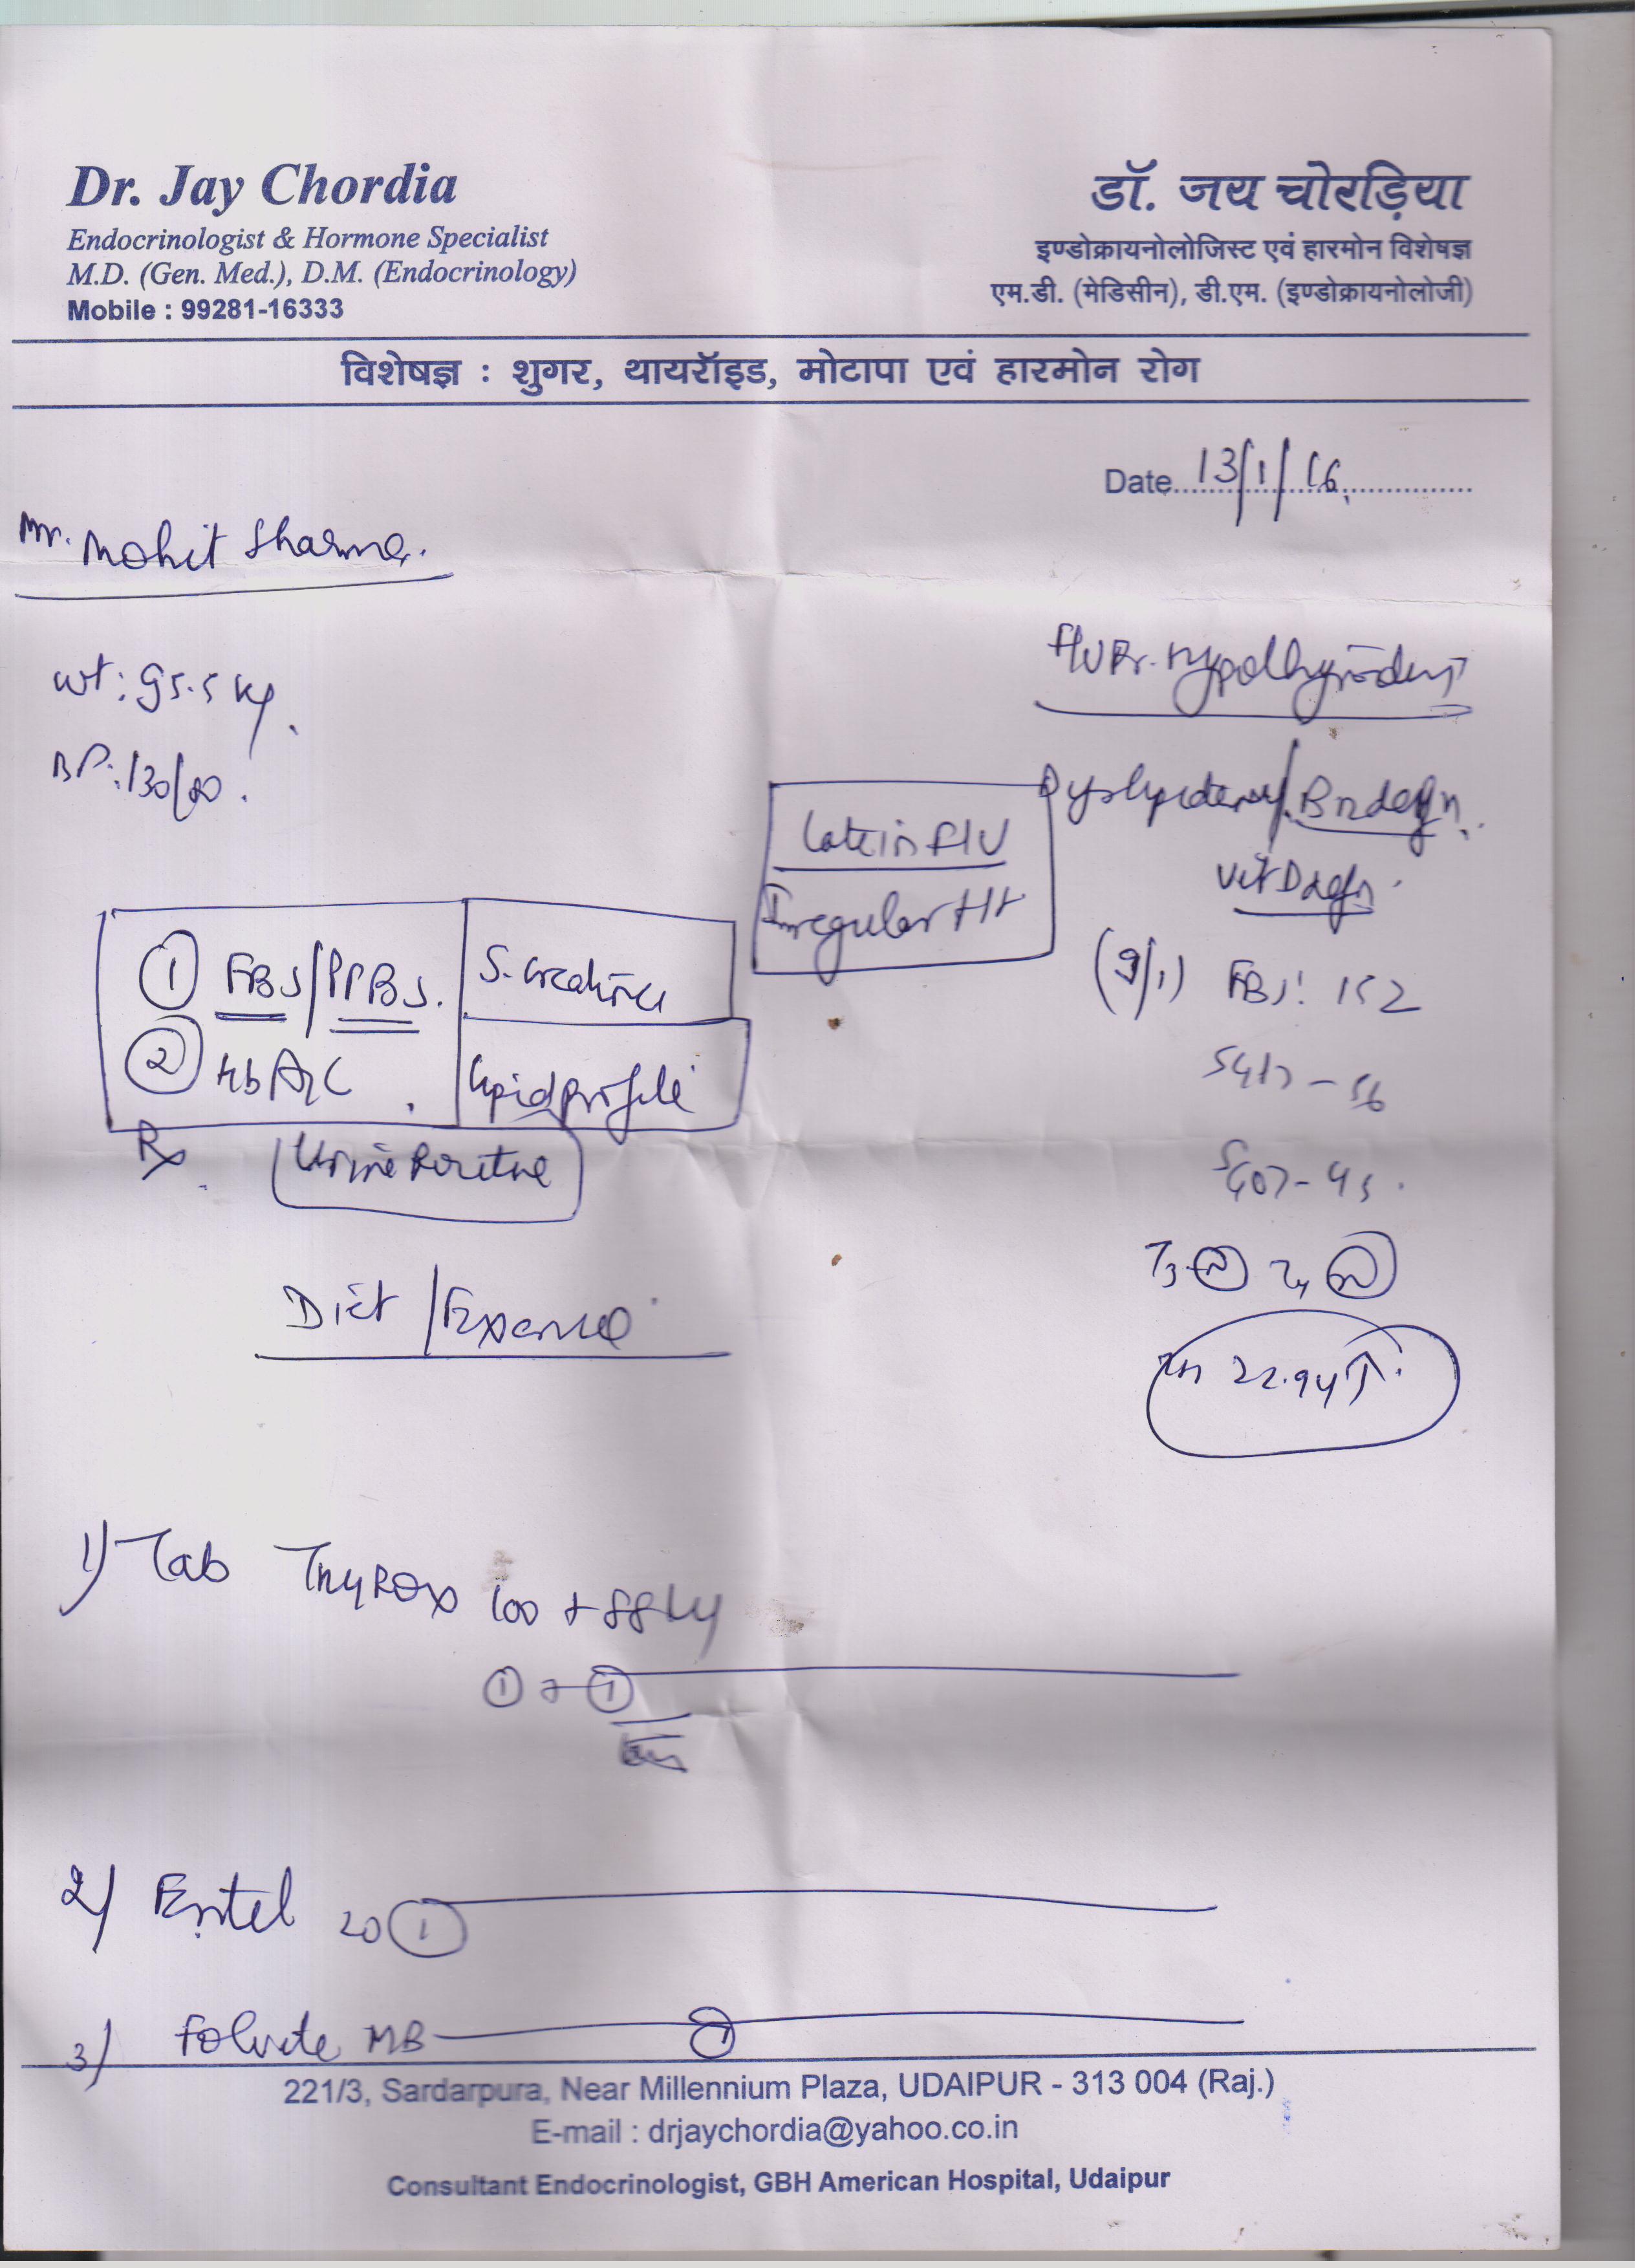 Dr. Jay Chordia
Endocrinologist & Hormone Specialist
M.D. (Gen. Med.), D.M. (Endocrinology)
Mobile : 99281-16333
डॉ. जय चोरड़िया
इण्डोक्रायनोलोजिस्ट एवं हारमोन विशेषज्ञ
एम.डी. (मेडिसीन), डी.एम. (इण्डोक्रायनोलोजी)
विशेषज्ञ : शुगर, थायरॉइड, मोटापा एवं हारमोन रोग
Date 13/1/16
Mr. Mohit Sharma.
wt: 95.5 kg.
BP: 130/80.
F/U Pr. Hypothyroidism
Dyslipidemia / B12 defn.
Vit D defn.
Late in F/U
Irregular H/t
(9/1) FBS: 152
SGPT - 56
SGOT - 45.
T3 N T4 N
22.94 ↑
1 FBS/PPBS.
S. creatinine
2 HbA1C.
Lipid profile
Rx
Urine Routine
Diet / Exercise
1) Tab Thyrox 100 + 88
1 + 1
2) 20 1
3) Folvite MB 1
221/3, Sardarpura, Near Millennium Plaza, UDAIPUR - 313 004 (Raj.)
E-mail : drjaychordia@yahoo.co.in
Consultant Endocrinologist, GBH American Hospital, Udaipur